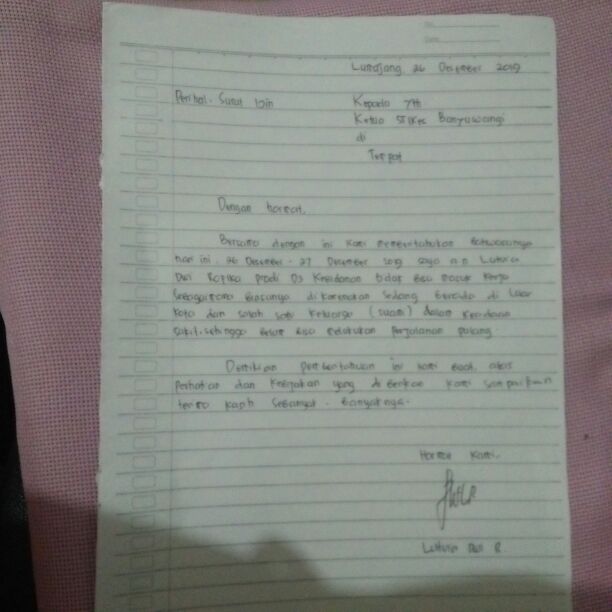 No.
Date.
Lumajang 26 Desember 2019
Perihal. Surat Izin Kepada Yth
Ketua STIKes Banyuwangi
di
Tempat
Dengan hormat.
Bersama dengan ini kami memberitahukan bahwasanya
hari ini 26 Desember - 27 Desember 2019 saya a.n
Dwi Prodi D3 Kebidanan tidak bisa masuk kerja
Sebagaimana Biasanya di karenakan Sedang Berada di luar
Kota dan salah satu keluarga (suami) dalam keadaan
sakit. sehingga belum bisa melakukan perjalanan pulang.
Demikian pemberitahuan ini kami buat, atas
perhatian dan Kebijakan yang di berikan kami sampaikan
terima kasih Sebanyak - banyaknya.
Hormat Kami.
Dwi R.